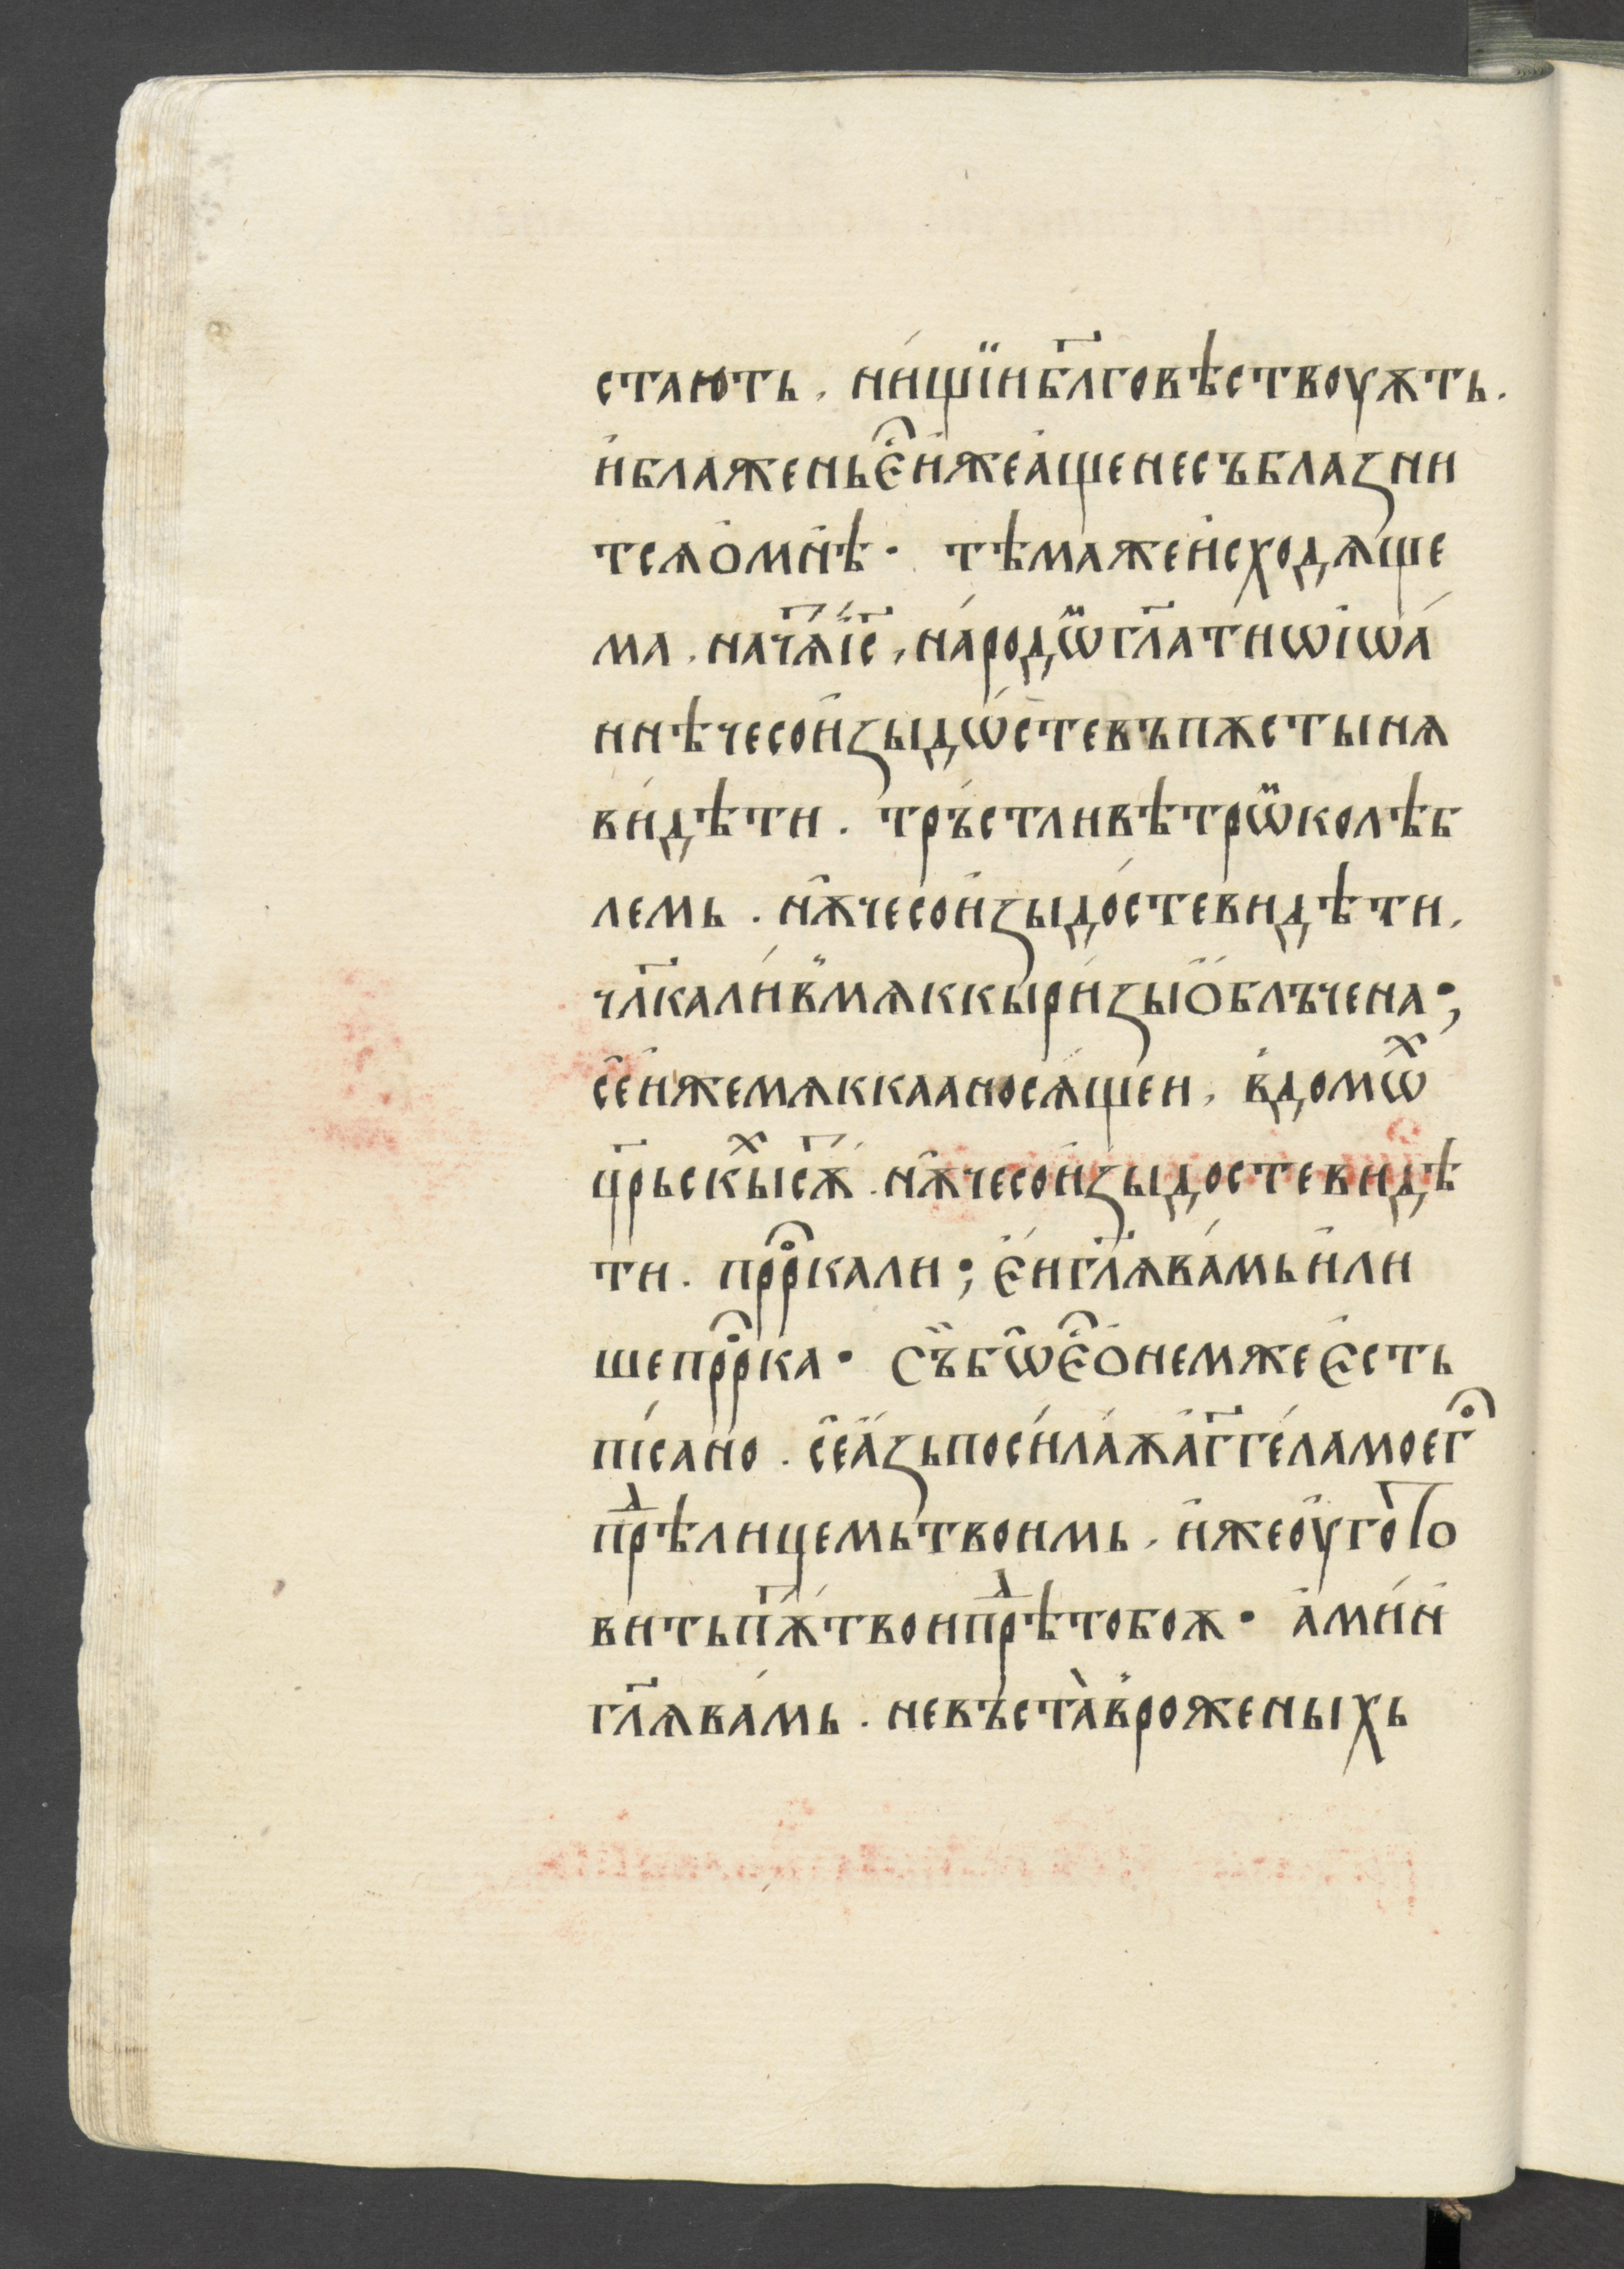 стають . ни́щїи бл҃говѣствоуѫть .
и҆блаженье҆҃и҆жеа҆щенесъблазни
тсѧо҆мнѣ · тѣмажеи҆сходѧще
ма . нача҃тї҃с , на́родѡ҃гл҃атиѡі҆ѡа́
ннѣчесои҆зыдѡ́стевъпѫстынѧ
ви́дѣти . тръ́стливѣтрѡ҃колѣб
лемь . нѫ҆чесои҆зыдо́стевидѣти .
чл҃кали́в̾мѧккыри́зыо҆блъчена ;
се҆и҆жемѧккааносѧ́щеи , в̾домѡⷯ
цр҃ьскыⷯсѫ҃ . нѫ҆чесои҆зыдостевидѣ
ти . прⷪ҇рокали ; є҆́и҆гл҃ѧва́мьи҆ли
шепрⷪ҇рка · Съ́бѡ҆є҆҃о҆немжеє҆сть
пі́сано . се҆а҆́зьпоси́ла́ѫа҆́гг҃е́ламоегⷪ҇
прⷣѣлицемьтвоимь , и҆жеоу҆гото
витьпѫ҃твоипрⷣѣтобоѫ · а҆ми́н
гл҃ѧва́мь . невъ́ста̀в̾роженыхь